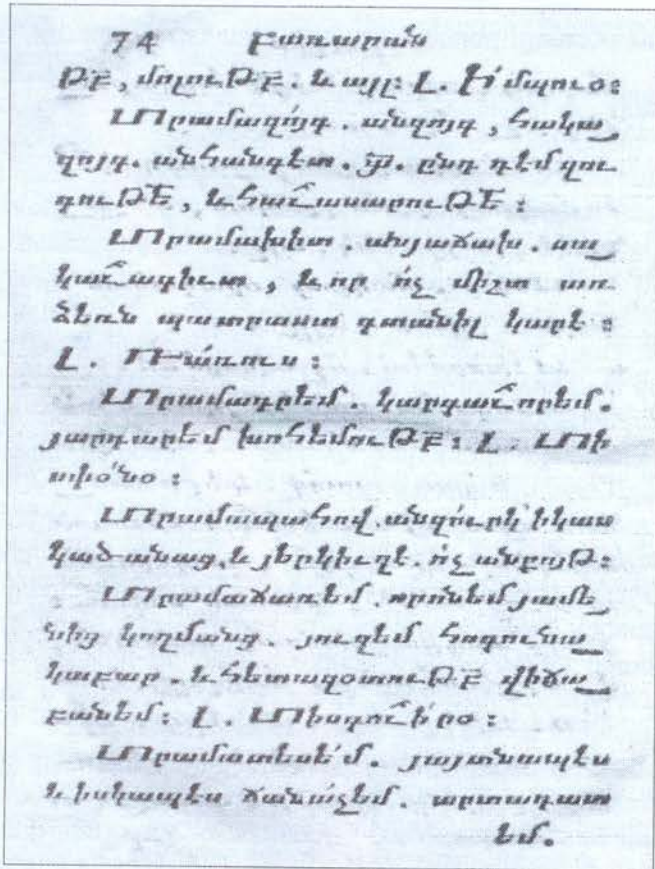 74 Բառարան
ԹԲ, մոլուԹԲ. և այլ: Լ. Ի՛մպուօ:
Տրամազոյգ. անզոյգ, հակա
զոյգ. անհանգէտ. ընդ դէմ զու
գուԹԵ, և հաւասարուԹԵ:
Տրամախիտ. անյաճախ. սա
կաւագիւտ, և որ ոչ միշտ առ
ձեռն պատրաստ գտանիլ կարէ:
Լ. Ռա՛ռուս:
Տրամադրեմ. կարգաւորեմ.
յարդարեմ խոհեմուԹԲ: Լ. Տի
սփօ՛նօ:
Տրամապահով. անզուրկ՝ ի կաս
կած անաց և յերկիւղէ. ոչ անքոյԹ:
Տրամաճառեմ. որոնեմ յամե
նից կողմանց. յուզեմ հոգունա
կաբար. և հետազօտուԹԲ վիճա
բանեմ: Լ. Տիսգուի՛րօ:
Տրամատեսե՛մ. յայտնապէս
և իսկապէս ճանաչեմ. արտադատ
եմ.